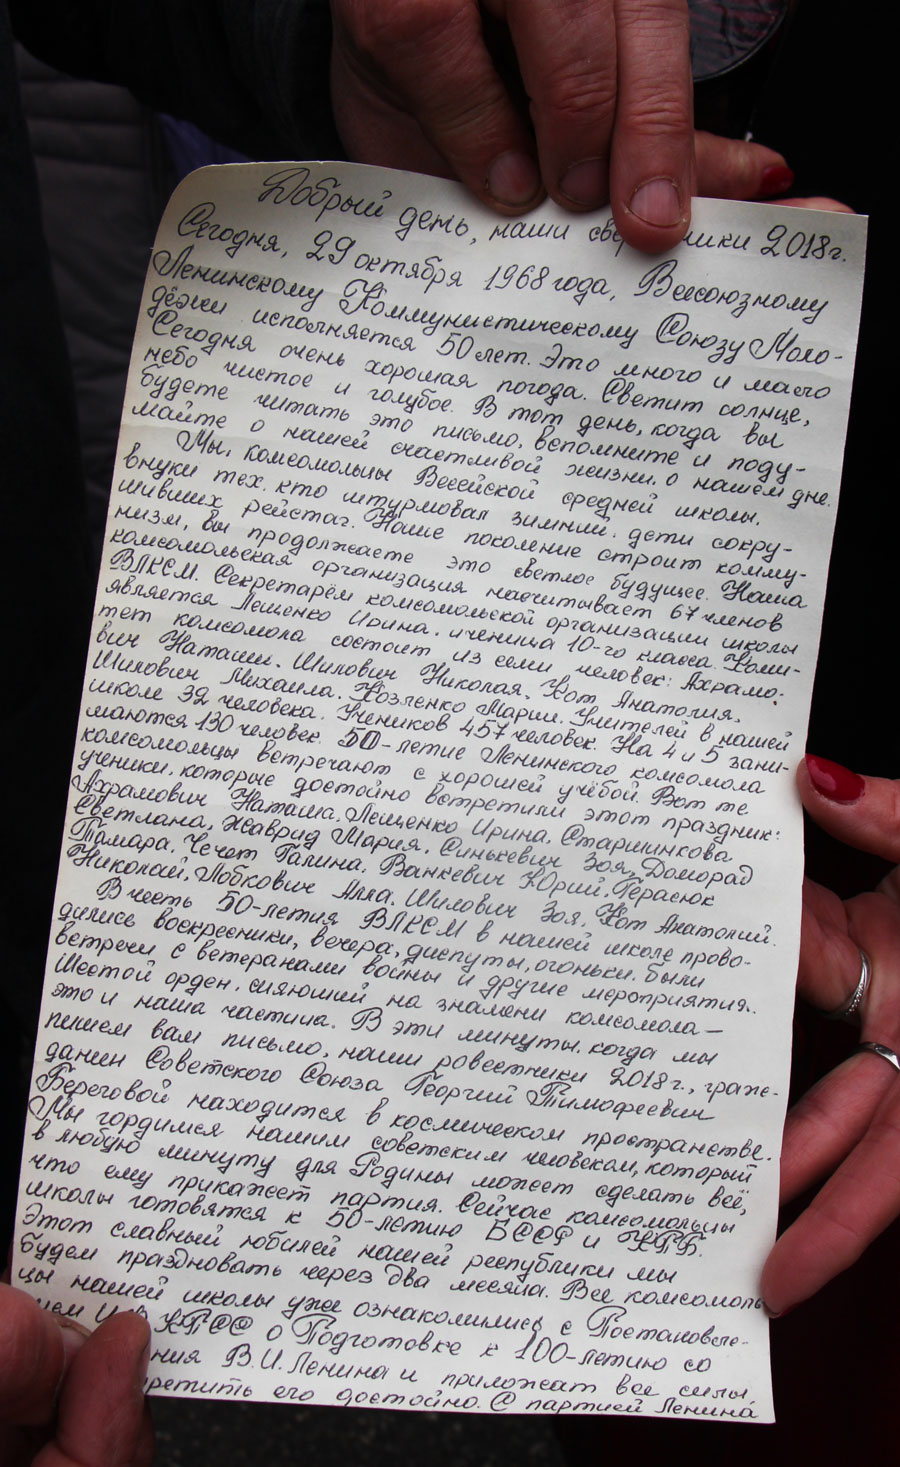 Добрый день, наши 2018г.
Сегодня, 29 октября 1968 года, Всесоюзному
Ленинскому Коммунистическому Союзу Моло-
дёжи исполняется 50 лет. Это много и мало
Сегодня очень хорошая погода. Светит солнце,
небо чистое и голубое. В тот день, когда вы
будете читать это письмо, вспомните и поду-
майте о нашей счастливой жизни, о нашем дне.
Мы, комсомольцы Весейской средней школы,
внуки тех, кто штурмовал зимний, дети сокру-
шивших рейстаг. Наше поколение строит комму-
низм, вы продолжаете это светлое будущее. Наша
комсомольская организация насчитывает 67 членов
ВЛКСМ. Секретарём комсомольской организации школы
является Лещенко Ирина, ученица 10-го класса. Коми-
тет комсомола состоит из семи человек: Ахрамо-
вич Наташи, Шилович Николая, Кот Анатолия,
Шилович Михаила, Козленко Марии. Учителей в нашей
школе 32 человека. Учеников 457 человек. На 4 и 5 зани-
маются 130 человек. 50-летие Ленинского комсомола
комсомольцы встречают с хорошей учёбой. Вот те
ученики, которые достойно встретили этот праздник:
Ахрамович Наташа, Лещенко Ирина, Старшинкова
Светлана, Жаврид Мария, Синькевич Зоя, Доморад
Тамара, Чечет Галина, Ванкевич Юрий, Герасюк
Николай, Лобкович Алла, Шилович Зоя, Кот Анатолий.
В честь 50-летия ВЛКСМ в нашей школе прово-
дились воскресники, вечера, диспуты, огоньки, были
встречи с ветеранами войны и другие мероприятия.
Шестой орден, сияющий на знамени комсомола —
это и наша частица. В эти минуты, когда мы
пишем вам письмо, наши ровестники 2018г., граж-
данин Советского Союза Георгий Тимофеевич
Береговой находится в космическом пространстве.
Мы гордимся нашим советским человеком, который
в любую минуту для Родины может сделать всё,
что ему прикажет партия. Сейчас комсомольцы
школы готовятся к 50-летию БССР и КПБ.
Этот славный юбилей нашей республики мы
будем праздновать через два месяца. Все комсомоль
цы нашей школы уже ознакомились с Постановле-
КПСС о Подготовке к 100-летию со
В.И. Ленина и приложат все силы,
его достойно. С партией Ленина